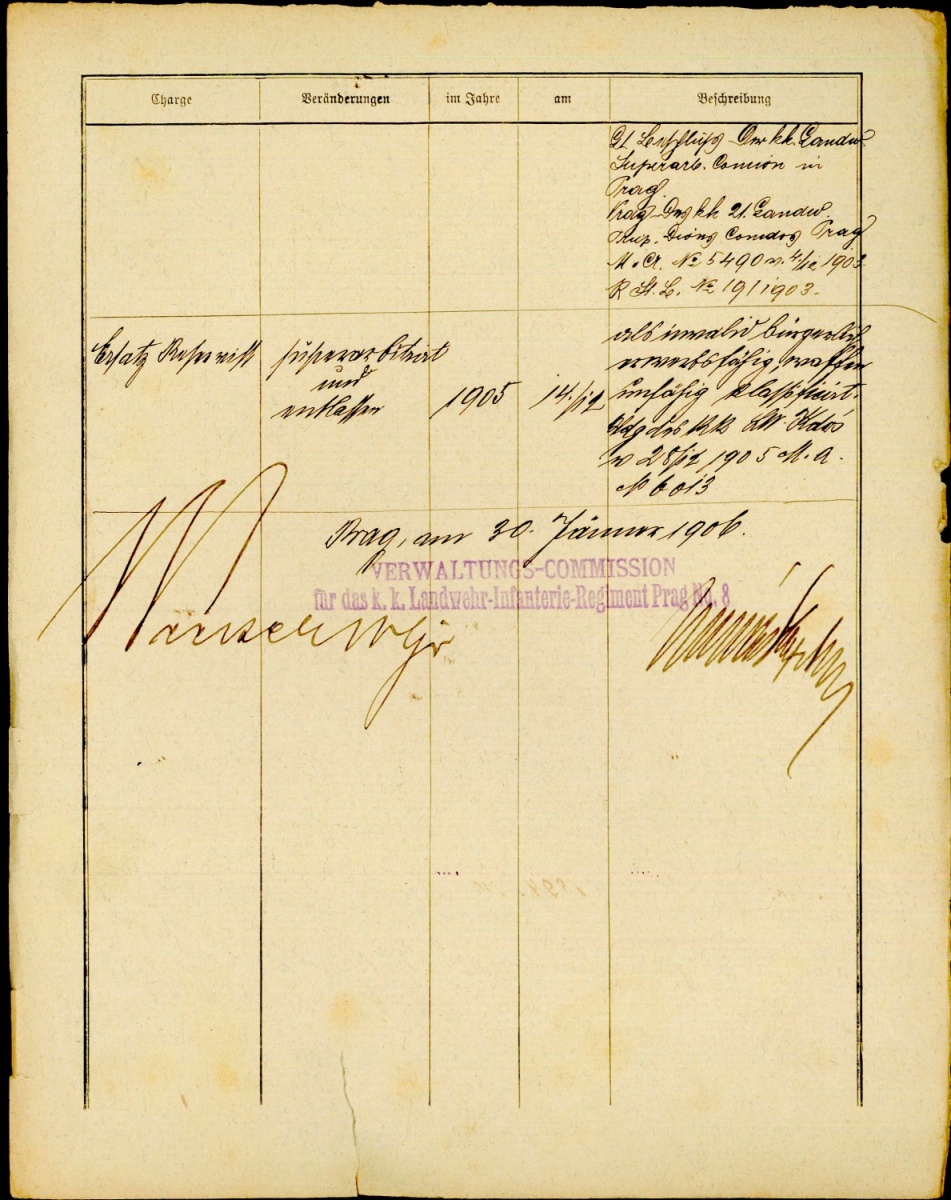 Charge Veränderungen im Jahre am Beschreibung
Lt. Beschluß der kk. Landw.
Superarb. Comion in
Prag.
Prag des kk 21. Landw.
Trup. Divns Comdos Prag
M. A. No 5490 v. 1903
No 19 1903.
Ersatz Reservist superarbitriert
und
entlassen 1905 14./12
als invalid bürgerlich
erwerbsfähig, waffen
unfähig klassificirt.
des kk LW. Kdos
v 28/12 1905 M. A.
N 6013
Prag, am 30. Jänner 1906.
VERWALTUNGS-COMMISSION
für das k. k. Landwehr-Infanterie-Regiment Prag No. 8